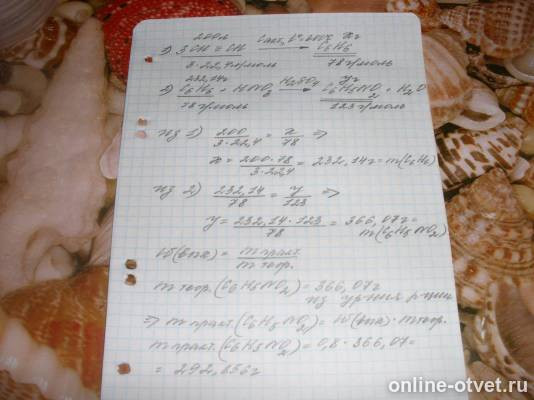 200л xг
1) 3CH≡CH C акт., t°=600°C → C6H6
3·22,4 л/моль 78 г/моль
232,14г yг
2) C6H6 + HNO3 H2SO4 → C6H5NO2 + H2O
78 г/моль 123 г/моль
из 1) 200/3·22,4 = x/78 =>
x = 200·78/3·22,4 = 232,14г = m(C6H6)
из 2) 232,14/78 = y/123 =>
y = 232,14·123/78 = 366,07г =
m(C6H5NO2)
W(вых) = m практ./m теор.
m теор. (C6H5NO2) = 366,07г
из ур-ния р-ции
=> m практ. (C6H5NO2) = W(вых)·m теор.
m практ. (C6H5NO2) = 0,8·366,07=
= 292,856г
online-otvet.ru